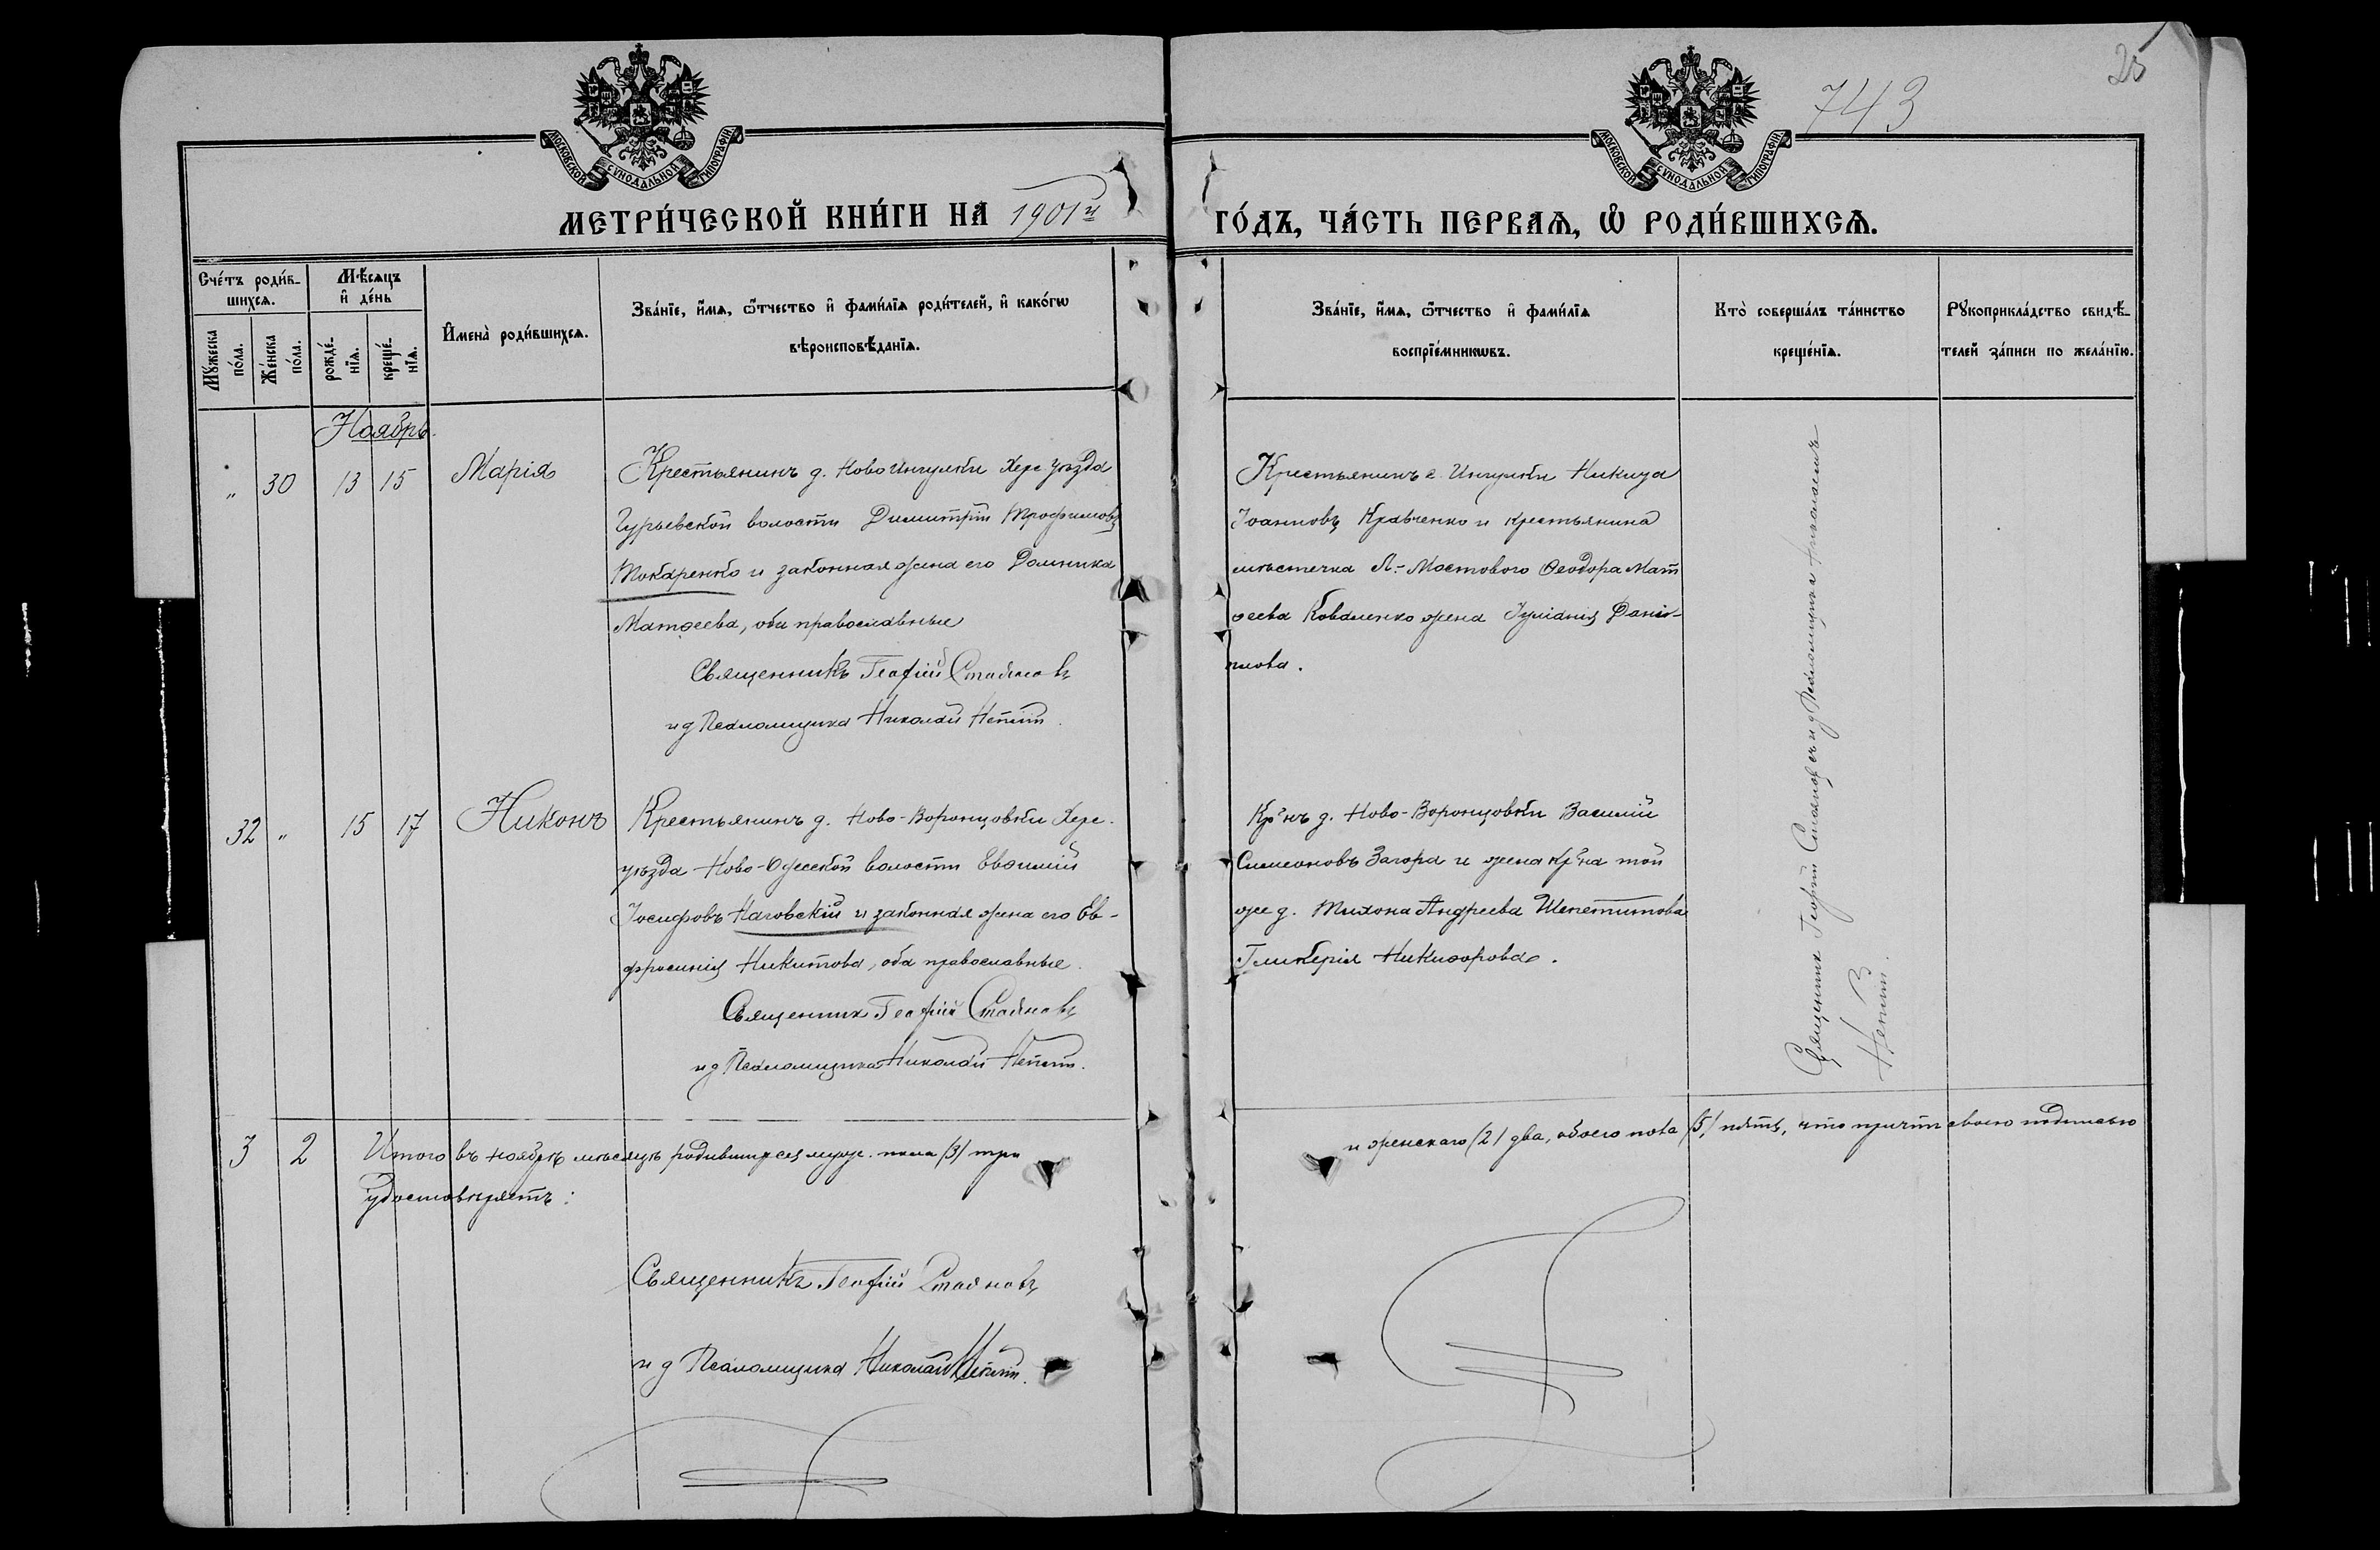 743
25
МОСКОВСКОЙ СѴНОДАЛЬНОЙ ТИПОГРАФІИ
МОСКОВСКОЙ СѴНОДАЛЬНОЙ ТИПОГРАФІИ
МЕТРИ́ЧЕСКОЙ КНИ́ГИ НА 1901й ГО́ДЪ, ЧА́СТЬ ПЕРВАѦ, Ѡ҆ РОДИ́ВШИХСѦ.
Сче́тъ роди́в-
шихсѧ.
Мꙋ́жеска по́ла.
Же́нска по́ла.
Мѣ́сѧцъ
и҆ де́нь
рожде́-
нїѧ.
креще́-
нїѧ.
И҆мена̀ роди́вшихсѧ.
Зва́нїе, и҆́мѧ, ѻ҆́тчество и҆ фами́лїѧ роди́телей, и҆ како́гѡ
вѣроисповѣ́данїѧ.
Зва́нїе, и҆́мѧ, ѻ҆́тчество и҆ фами́лїѧ
воспрїе́мникѡвъ.
Кто̀ соверша́лъ та́инство
креще́нїѧ.
Рꙋкоприкла́дство свидѣ́-
телей за́писи по жела́нїю.
Ноябрь.
" 30 13 15 Марія
Крестьянинъ д. Ново Ингулки Хере уѣзда
Гурьевской волости Димитрій Трофимовъ
Токаренко и законная жена его Домника
Матѳеева, оба православные
Священникъ Георгій Стояновъ
и д Псаломщика Николай
Крестьянинъ с. Ингулки Никита
Іоанновъ Кравченко и крестьянина
мѣстечка Л.-Мостового Ѳеодора Мат
ѳеева Коваленко жена Іуліанія Дані-
илова.
32 " 15 17 Никонъ
Крестьянинъ д. Ново-Воронцовки Хере.
уѣзда Ново-Одесской волости Евѳимій
Іосифовъ Наговскій и законная жена его Ев-
фросинія Никитова, оба православные.
Священникъ Георгій Стояновъ
и д Псаломщика Николай
Кр҃нъ д. Ново-Воронцовки Василій
Симеоновъ Загора и жена кр҃на той
же д. Тихона Андреева Шепетитова
Гликерія Никифорова.
Священникъ Георгій Стояновъ и д Псаломщика
3 2 Итого въ ноябрѣ мѣсяцѣ родившихся муж. пола (3) три
и женскаго (2) два, обоего пола (5) пять, что причтъ своею подписью
удостовѣряетъ:
Священникъ Георгій Стояновъ
и д Псаломщика Николай